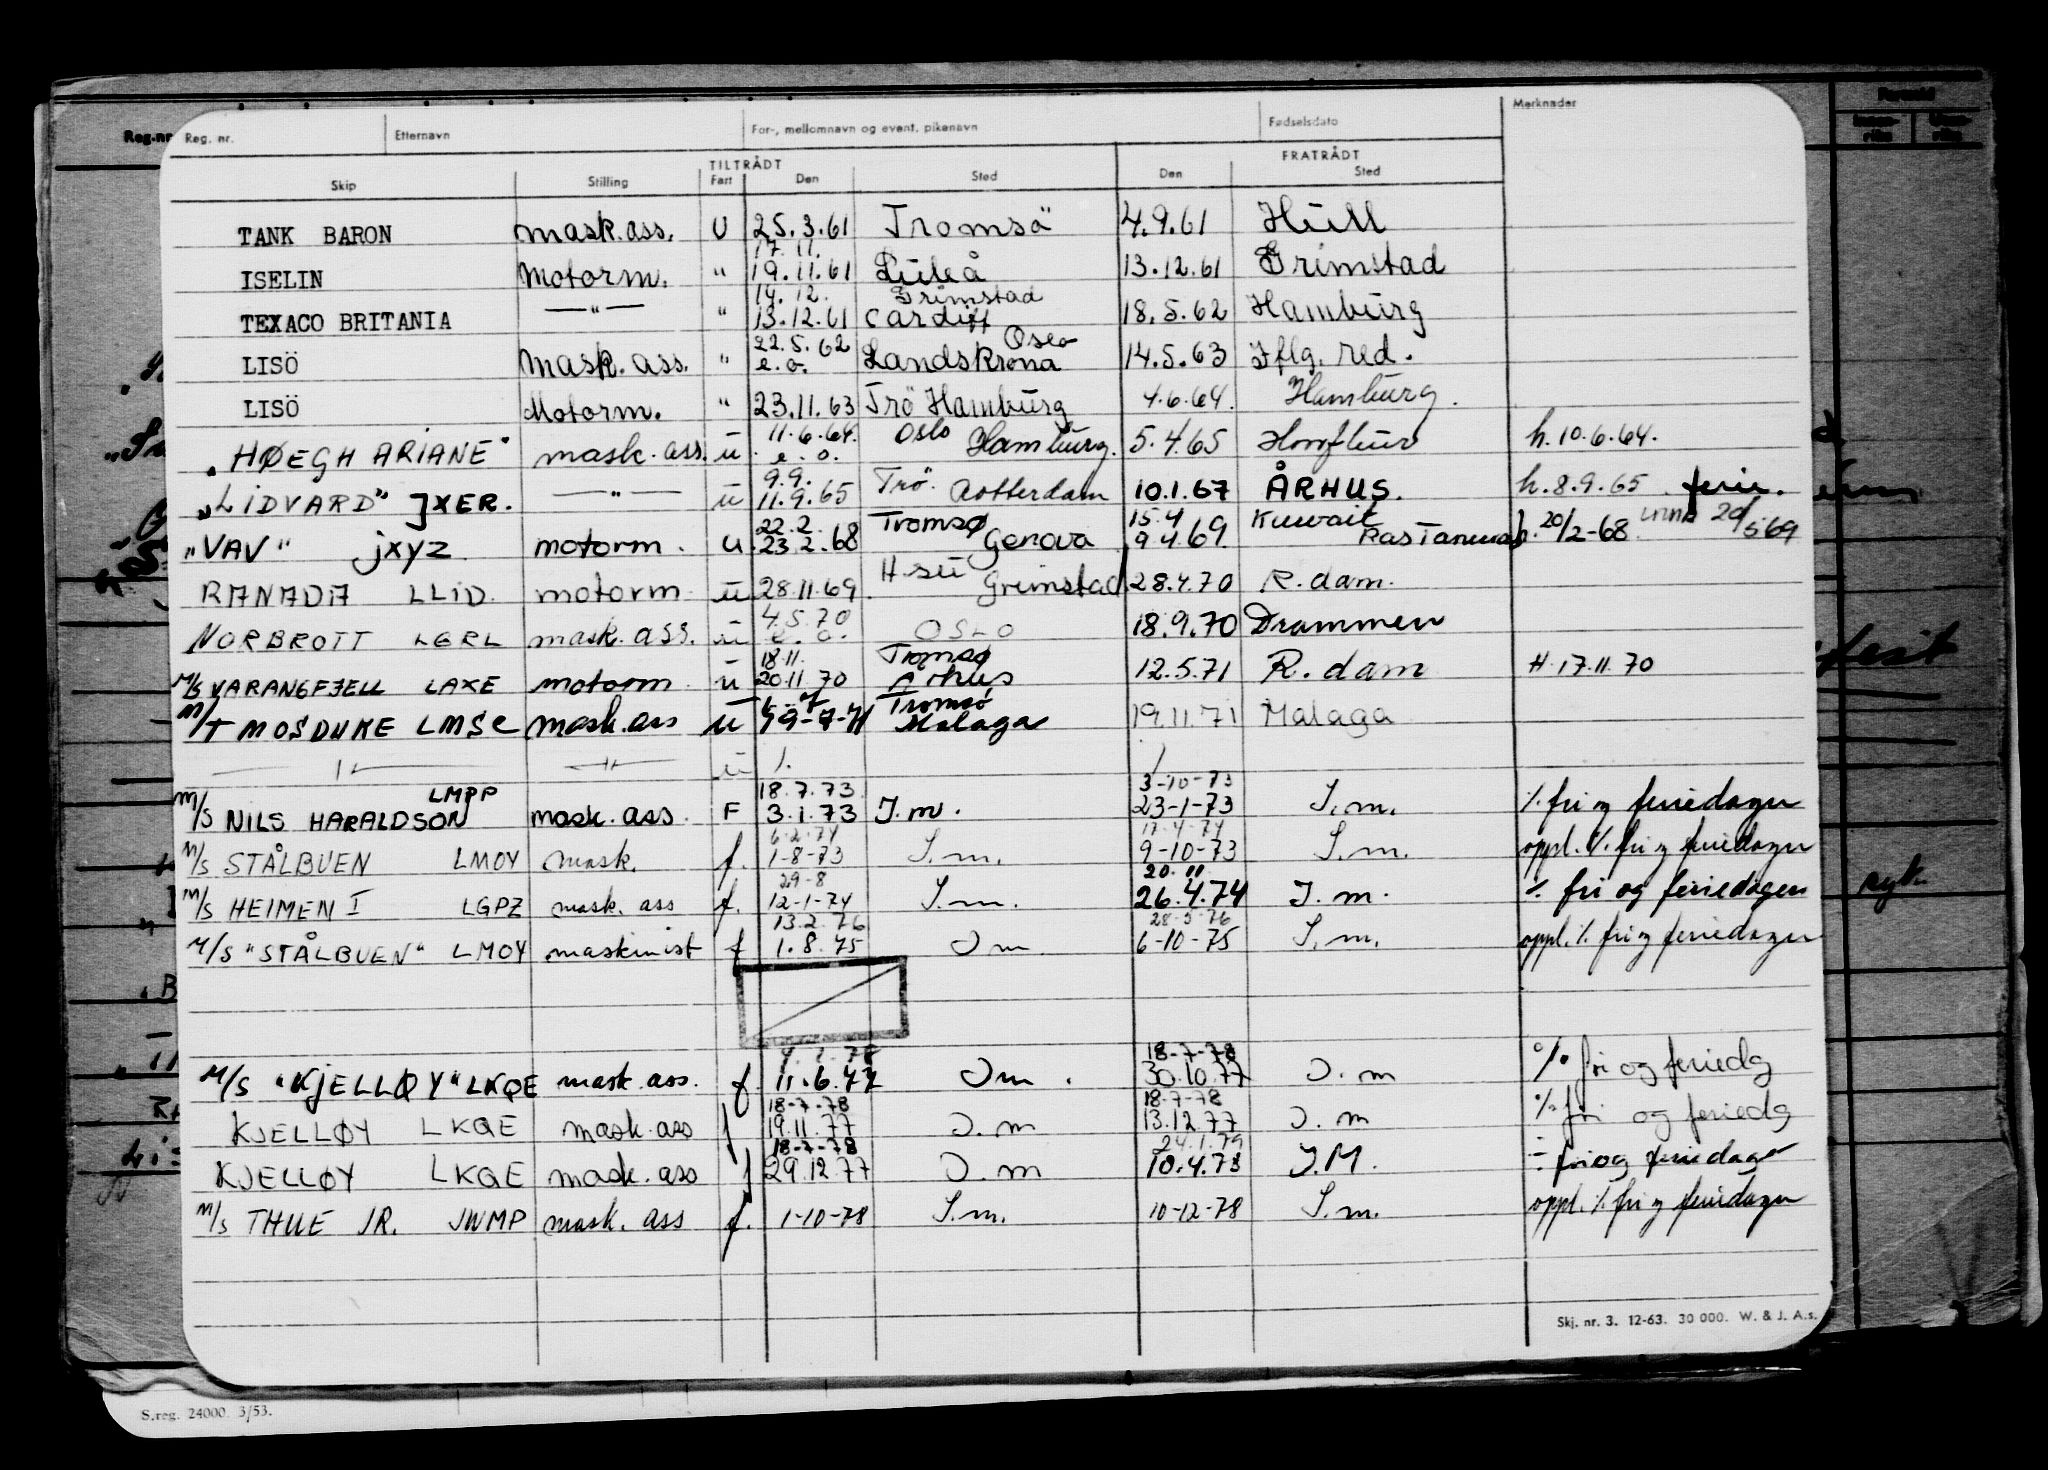 Reg. nr. Etternavn For-, mellomnavn og event. pikenavn Fødselsdato Merknader
TILTRÅDT FRATRÅDT
Skip Stilling Fart Den Sted Den Sted
TANK BARON mask.ass. U 25.3.61 Tromsö 4.9.61 Hüll
17.11.
ISELIN Motorm. " 19.11.61 Lüleå 13.12.61 Grimstad
14.12. Grimstad
TEXACO BRITANIA —"— " 13.12.61 Cardiff 18.5.62 Hambürg
22.5.62 Oslo
LISÖ Mask.ass. " e.o. Landskrona 14.5.63 Iflg. red.
LISÖ Motorm. " 23.11.63 Trö Hambürg 4.6.64. Hambürg.
11.6.64. Oslo
"HØEGH ARIANE" mask.ass. ü e.o. Hambürg. 5.4.65 Honfleur h.10.6.64.
9.9. Trö.
"LIDVARD" JXER. —"— ü 11.9.65 Rotterdam 10.1.67 ÅRHUS. h.8.9.65 ferie.
22.2. Tromsø 15.4 Kuwait
"VAV" jxyz motorm. u. 23.2.68 Genova 9.4.69. RasTanurah h. 20/2-68 20/5-69
H-sü
RANADA LLID. motorm. ü 28.11.69. Grimstad 28.4.70 R.dam.
4.5.70
NORBROTT LGRL mask.ass. ü e.o. OSLO 18.9.70 Drammen
18.11. Tromsø
M/S VARANGFJELL LAXE motorm ü 20.11.70 Århus 12.5.71 R.dam H.17.11.70
Tromsö
M/T MOSDUKE LMSC mask.ass ü 19-7-71 Malaga 19.11.71 Malaga
—"— —"— ü /. /
LMPP 18.7.73. 3-10-73
M/S NILS HARALDSON mask.ass. F 3.1.73 I.m. 23-1-73 I.m. ⁒ fri og feriedager
6.2.74 17.4.74
M/S STÅLBUEN LMOY mask. f. 1-8-73 I.m. 9-10-73 I.m. oppl. ⁒ fri og feriedager
29-8 20.11
M/S HEIMEN I LGPZ mask. ass f. 12-1-74 I.m. 26.4.74 I.m. ⁒ fri og feriedager
13.2.76 28-5-76
M/S "STÅLBUEN" LMOY maskinist f 1.8.75 I m 6-10-75 I.m. oppl. ⁒ fri og feriedager
18-7-78
M/S "KJELLØY" LKQE mask.ass. f. 11.6.77 I m. 30.10.77 I.m % fri og feriedg
18-7-78 18-7-78
KJELLØY LKQE mask.ass f 19.11.77 I.m 13.12.77 I.m % fri og feriedg
18-7-78 24.1.79
KJELLØY LKQE mask.ass f 29.12.77 I.m 10.4.78 I.M. ÷ fri og feriedager
M/S THUE JR. JWMP mask. ass f. 1-10-78 I.m. 10-12-78 I.m. oppl. ⁒ fri og feriedager
Skj. nr. 3. 12-63. 30 000. W. & J. A.s.
S.reg. 24000. 3/53.